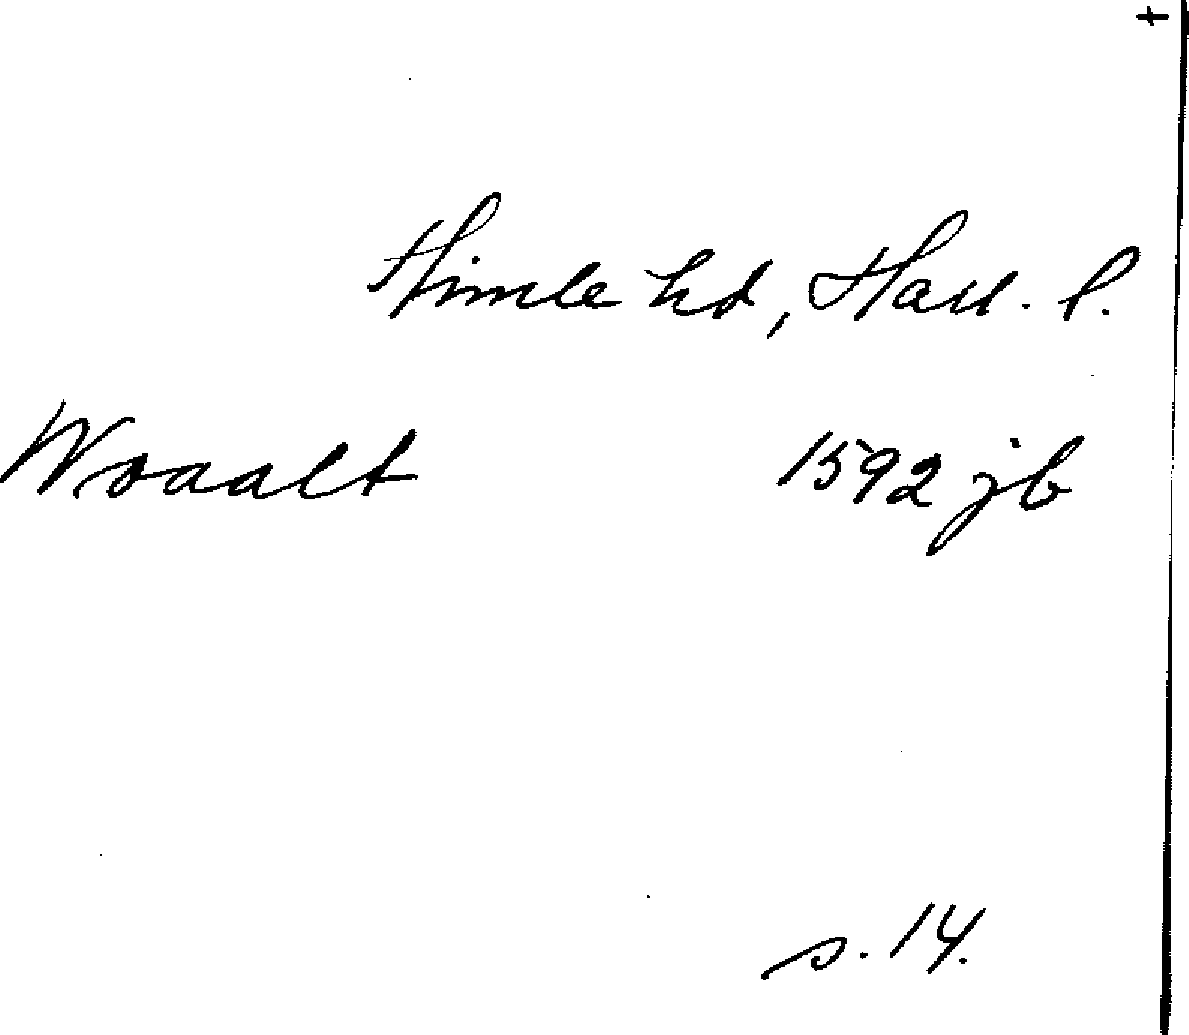 +
Himle hd, Hall. l.
Wraalt 1592 jb
s. 14.